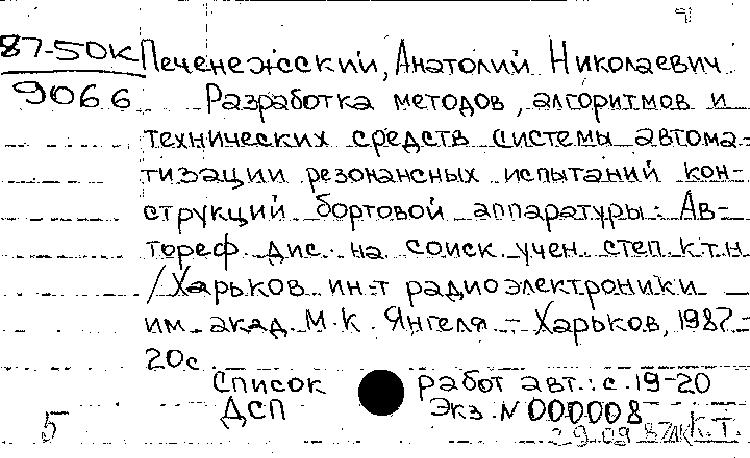 91
87-50К Печенежский, Анатолий Николаевич
9066 Разработка методов, алгоритмов и
технических средств системы автома-
тизации резонансных испытаний кон-
струкций бортовой аппаратуры: Ав-
тореф дис. на соиск учен степ к.т.н
/Харьков ин-т радиоэлектроники
им. акад. М.К. Янгеля - Харьков, 1987-
20с
Список работ авт.: с.19-20
ДСП Экз. N 000008
5 29.09.87 К.Т.